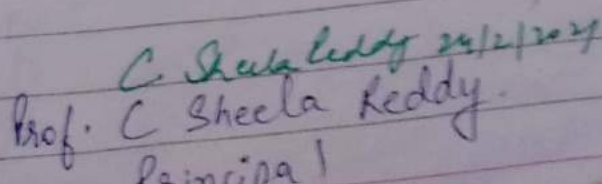 C. Sheela Reddy 24/2/2021
Prof. C Sheela Reddy.
Principal